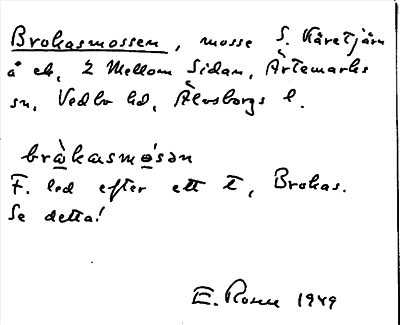 Brokasmossen, mosse S. Kåretjärn
å ek. 2 Mellom Sidan, Ärtemarks
sn, Vedbo hd, Älvsborgs l.
bràkasmósən
F. led efter ett t, Brokas.
Se detta!
E. 1949